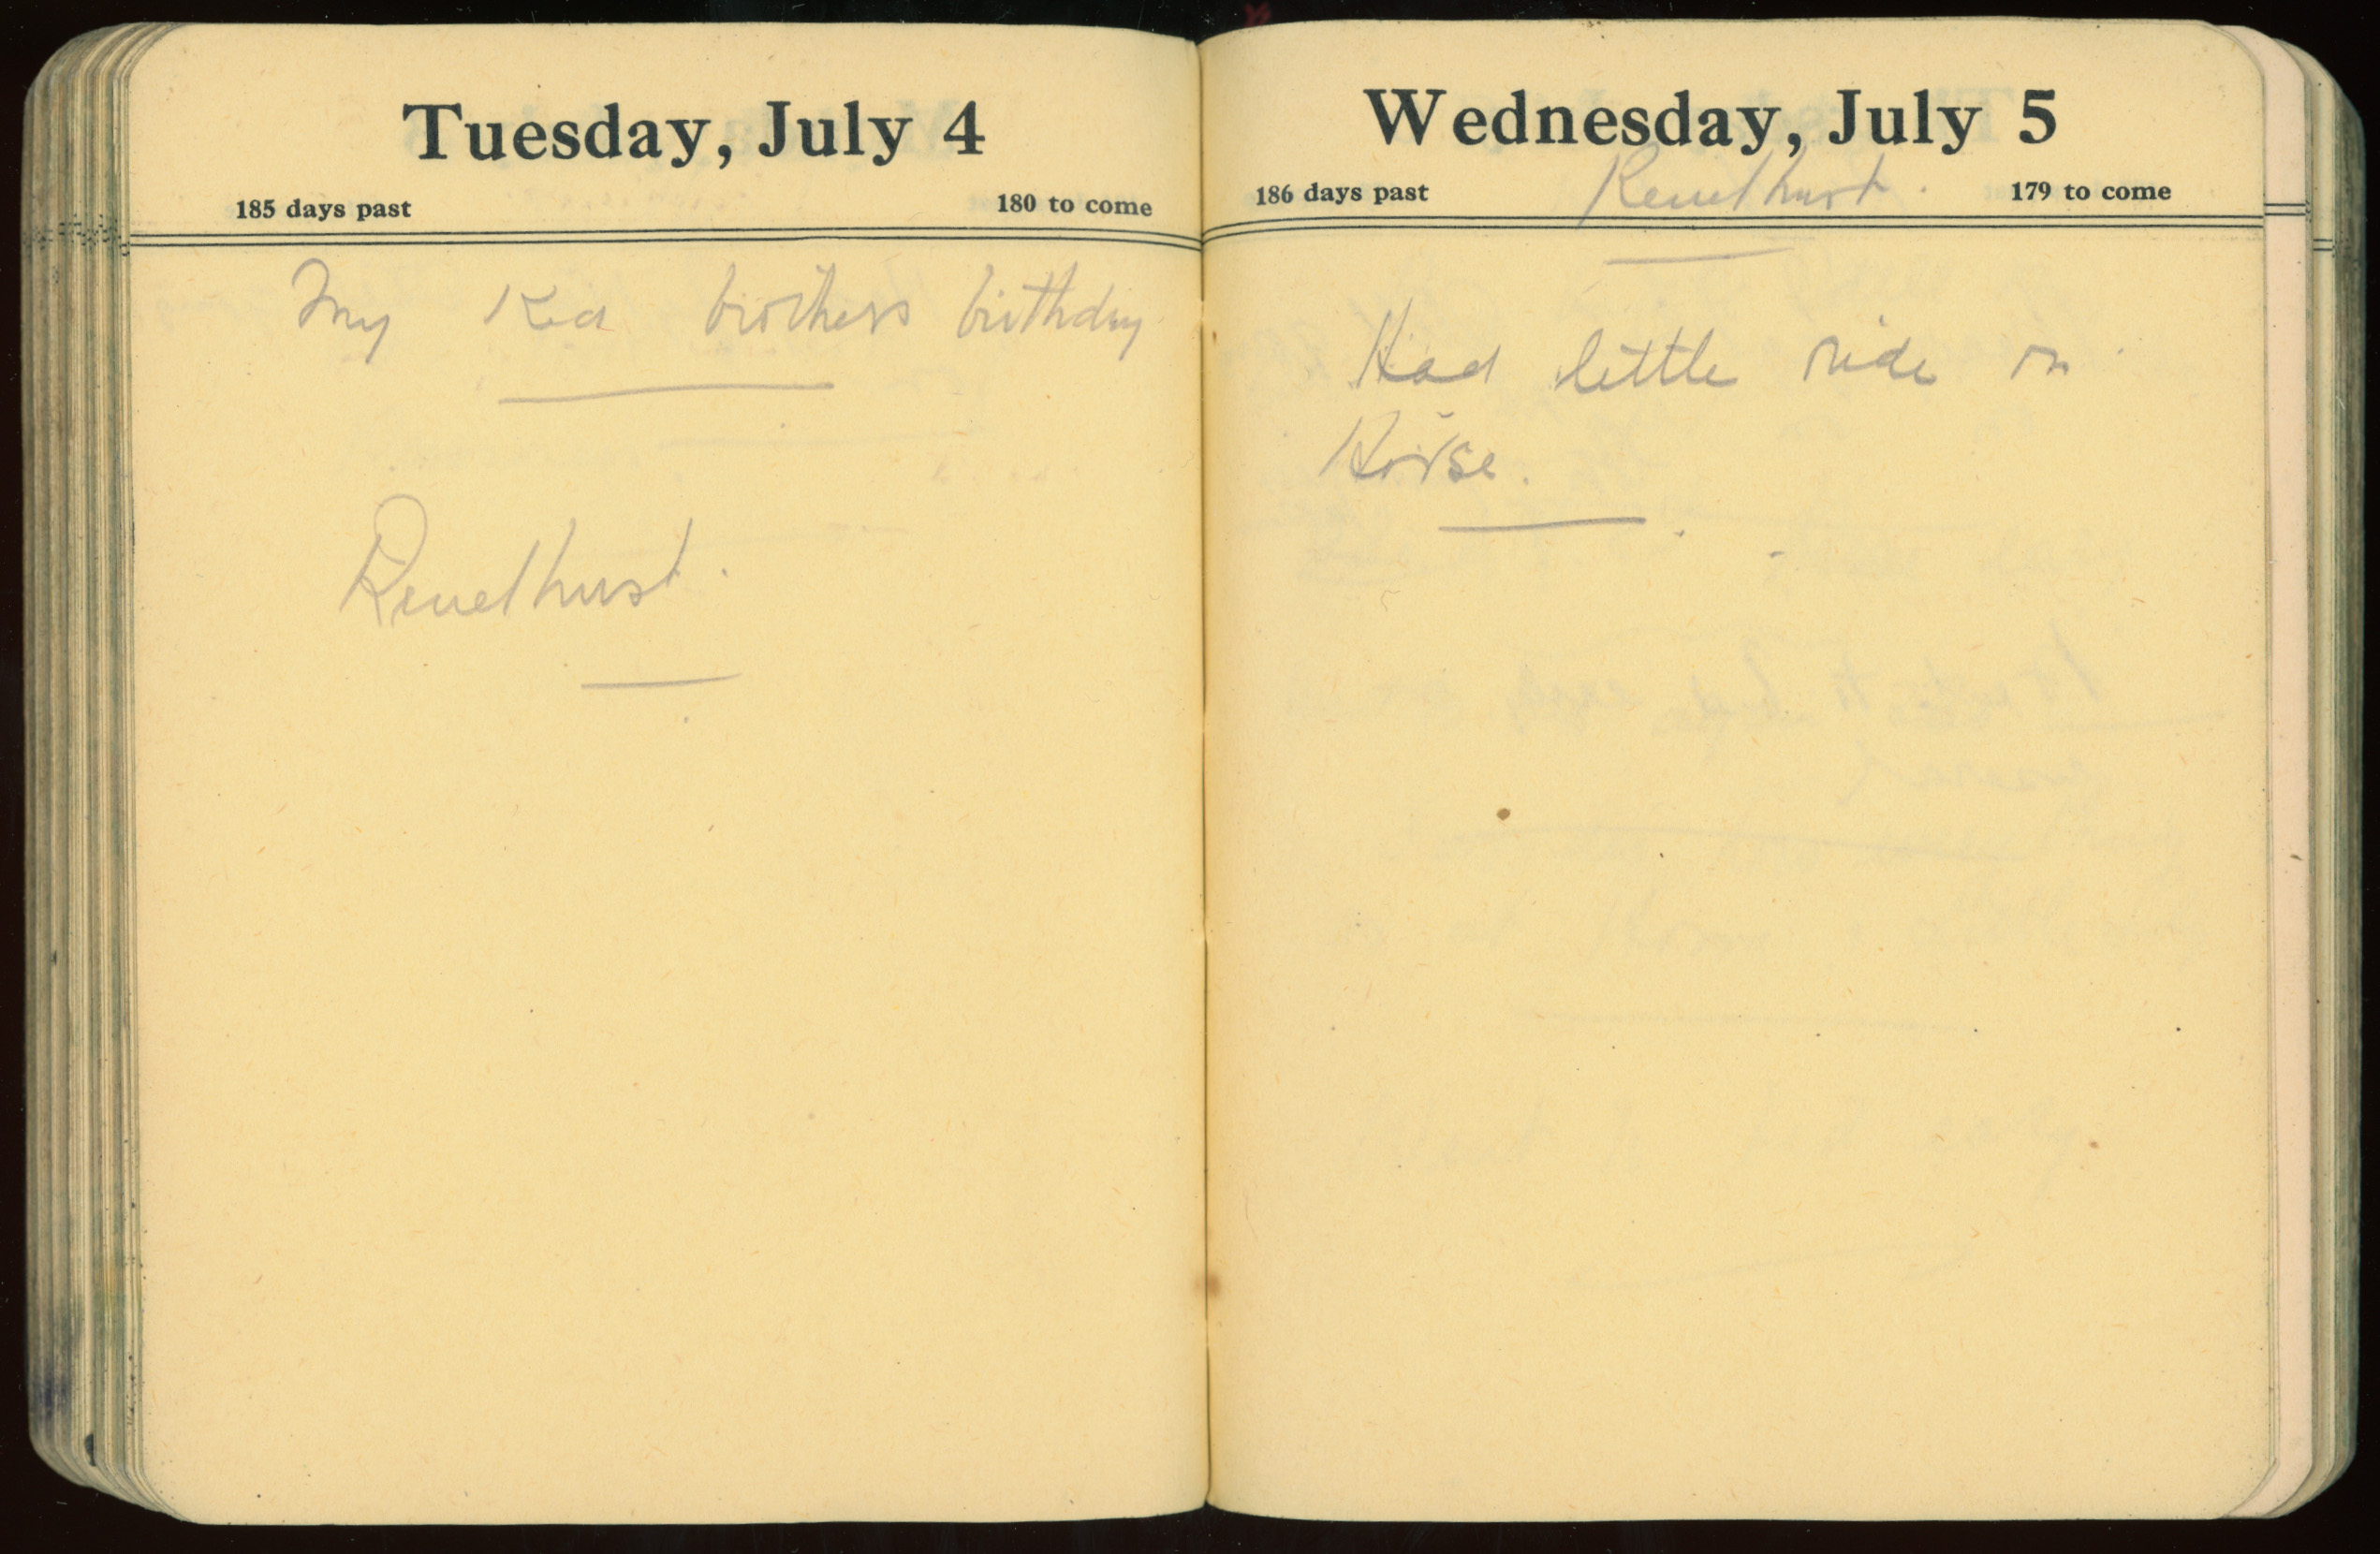 Tuesday, July 4
185 days past 180 to come
My Kid brothers birthday
Renelhurst.
Wednesday, July 5
186 days past Renelhurst. 179 to come
Had little ride on
Horse.